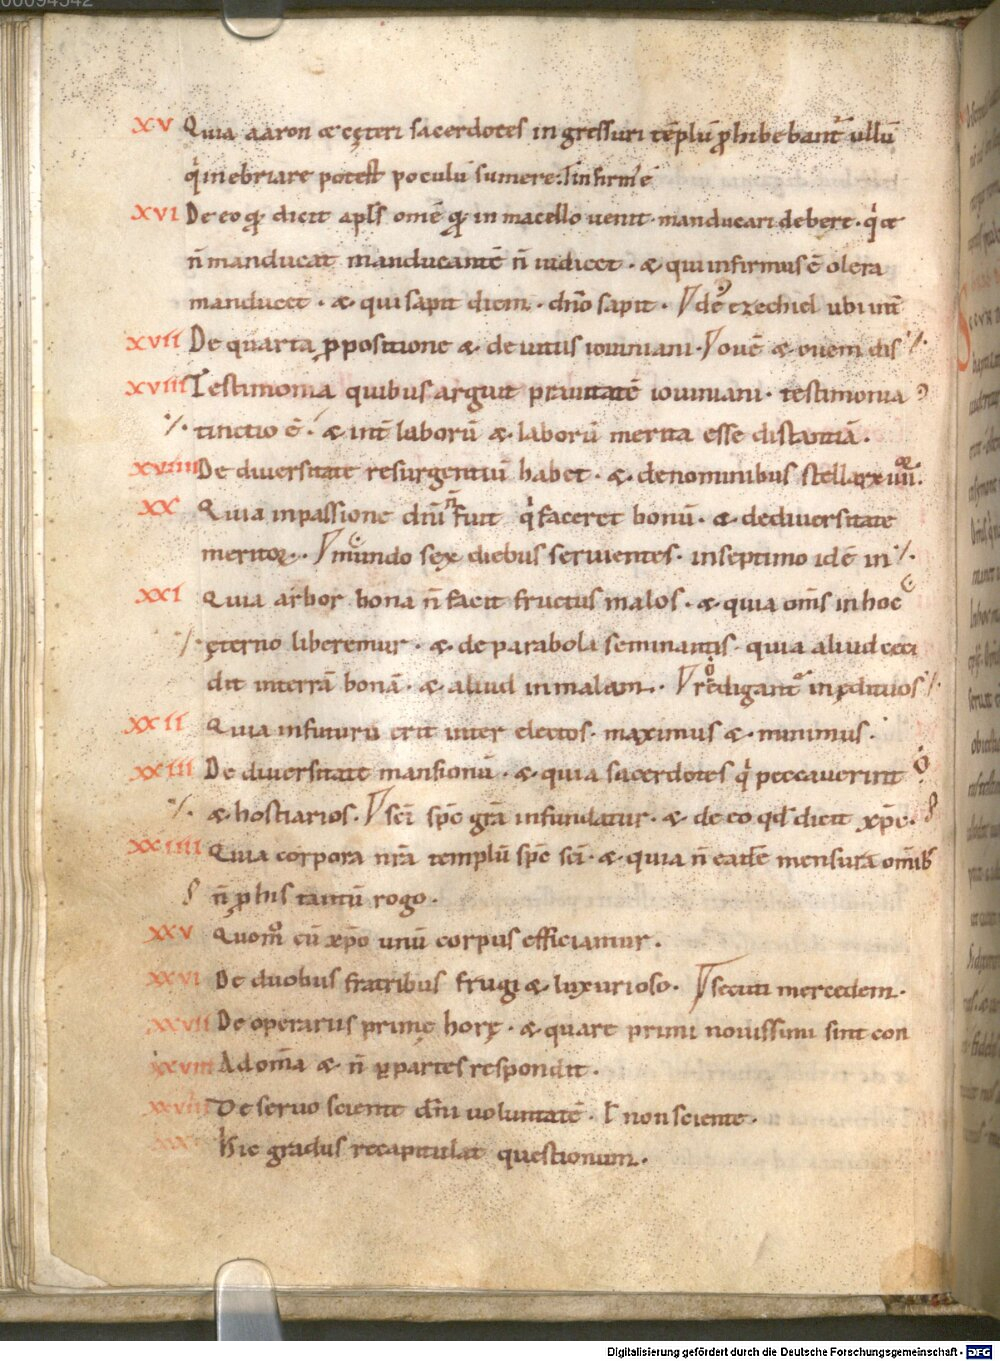 00094542
XV Quia aaron & cęteri sacerdotes in gressuri tēplū ꝓhibebant᷑ ullū
qͥ inebriare potest poculū sumere: ł infirm̄ ē
XVI De eo qđ dicit apl̄s omē qđ in macello uenit · manducari debere · qͥ &
n̄ manducat manducantē n̄ iudicet · & qui infirmus ē olera
manducet · & qui sapit diem · dn̄o sapit · de ezechiel ubi
XVII De quarta ꝓpositione & de uitiis iouiniani · ouē & ouem dis ·/·
XVIII Testimonia quibus arguit prauitatē iouiniani · testimonia
·/· tinctio ē · & int̄ laborū & laborū merita esse distantiā ·
XVIIII De diuersitate resurgentiū habet · & de nominibus stellarꝝ
XX Quia in passione dn̄i n̄ fuit qͥ faceret bonū · & de diuersitate
meritoꝝ · mundo sex diebus seruientes · in septimo idē in ·/·
XXI Quia arbor bona n̄ facit fructus malos · & quia om̄s in hoc
·/· ęterno liberemur · & de parabola seminantis · quia aliud ceci
dit in terrā bonā · & aliud in malam · redigant᷑ in ędituos ·/·
XXII Quia in futurū erit inter electos · maximus & minimus ·
XXIII De diuersitate mansionū · & quia sacerdotes qͥ peccauerint
·/· & hostiarios · sc̄i sp̄c gr̄a infundatur · & de eo qđ dicit xp̄c ·
XXIIII Quia corpora nr̄a templū sp̄c sc̄i · & quia n̄ eadē mensura omīb;
n̄ ꝓ his tantū rogo ·
XXV Quom̄ cū xp̄o unū corpus efficiamur ·
XXVI De duobus fratribus frugi & luxurioso · secuti mercedem ·
XXVII De operariis primę horę · & quare primi nouissimi sint con
XXVIII Ad om̄a & n̄ ꝑ partes respondit ·
XXVIIII De seruo sciente dn̄i voluntatē · ł non sciente ·
XXX Hic gradus recapitulat questionum ·
Digitalisierung gefördert durch die Deutsche Forschungsgemeinschaft - DFG